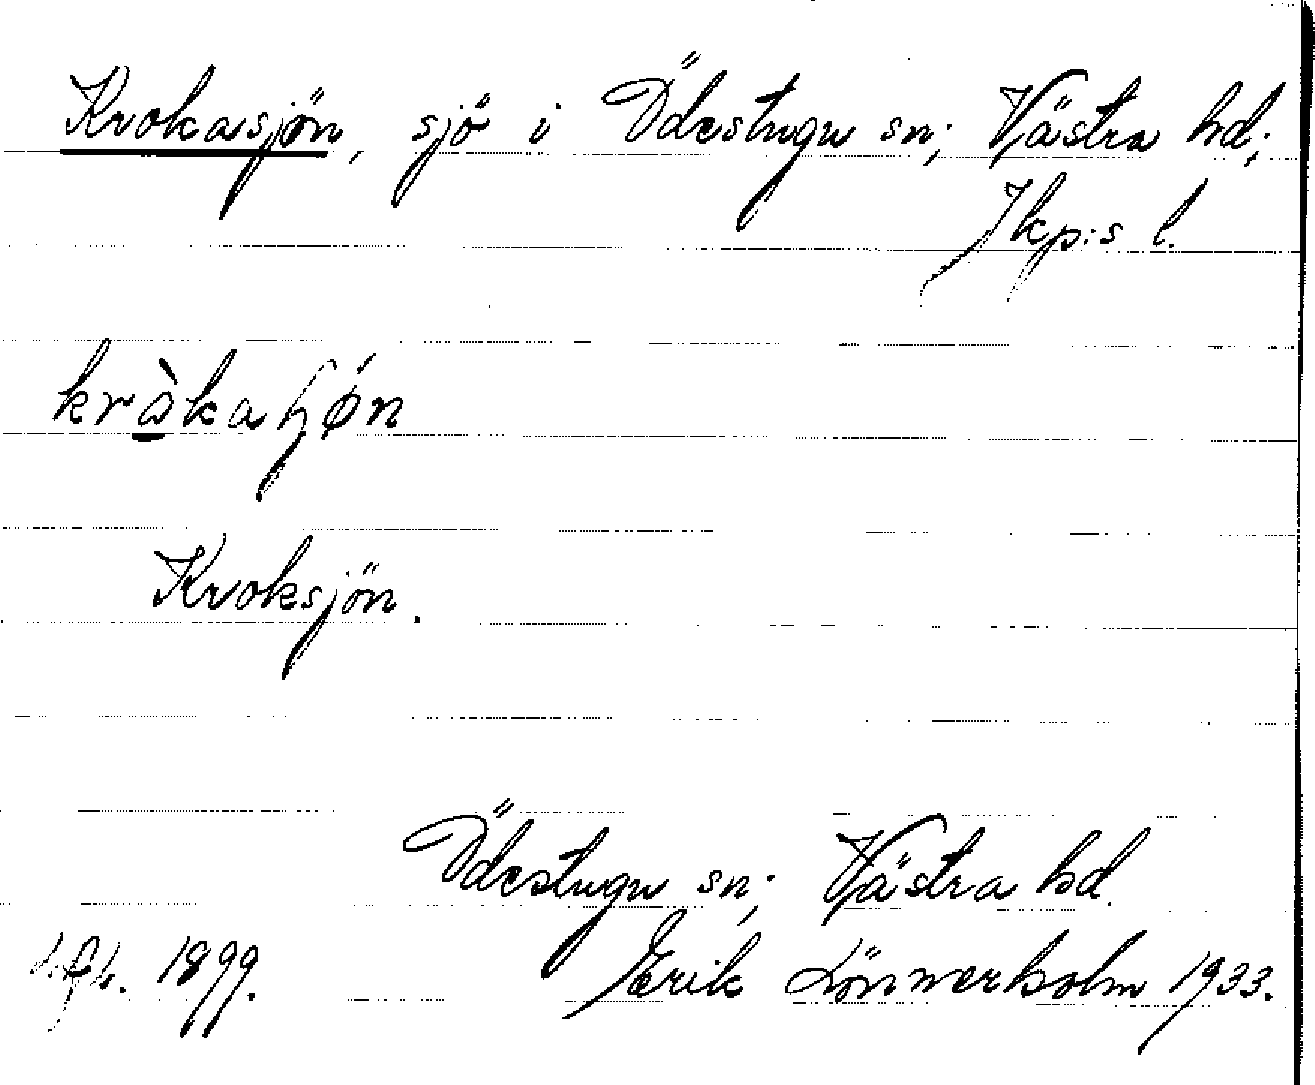 Krokasjön, sjö i Ödestugu sn; Västra hd;
Jkp:s l.
kràkaɧøn
Kroksjön.
Ödestugu sn; Västra hd.
1899. Erik Lönnerholm 1933.